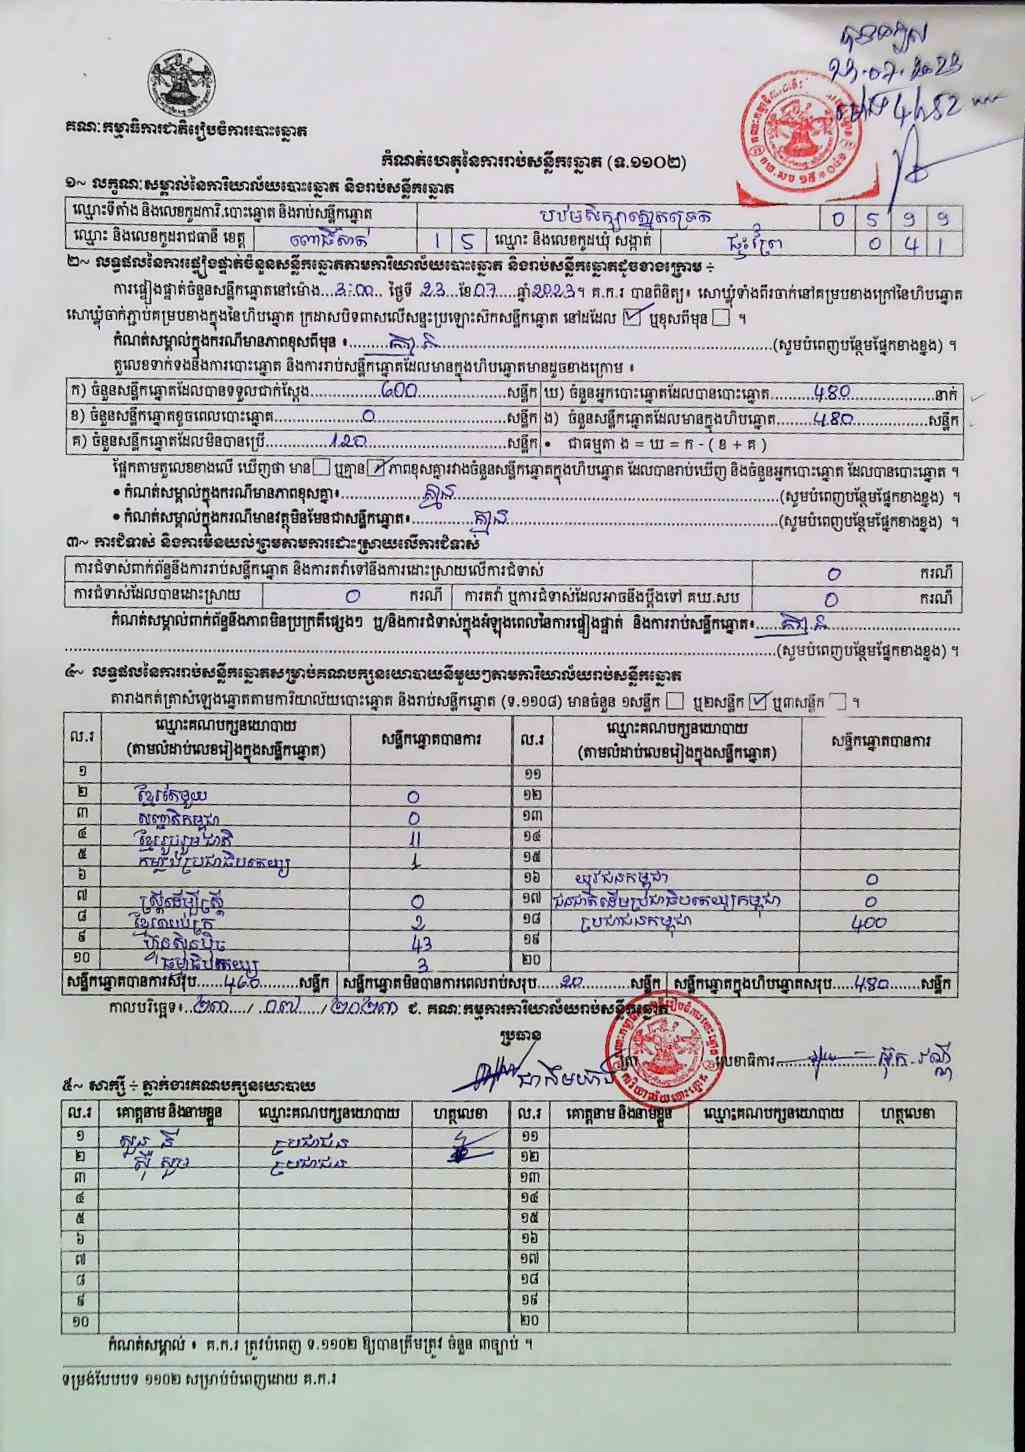 គណៈកម្មាធិការជាតិរៀបចំការបោះឆ្នោត
កំណត់ហេតុនៃការរាប់សន្លឹកឆ្នោត (ទ.១១០២)
១~ លក្ខណៈសម្គាល់នៃការិយាល័យបោះឆ្នោត និងរាប់សន្លឹកឆ្នោត
ឈ្មោះទីតាំង និងលេខកូដការិ.បោះឆ្នោត និងរាប់សន្លឹកឆ្នោត 0 5 9 9
ឈ្មោះ និងលេខកូដរាជធានី ខេត្ត ពោធិ៍សាត់ 1 5 ឈ្មោះ និងលេខកូដឃុំ សង្កាត់ 0 4 1
២~ លទ្ធផលនៃការផ្ទៀងផ្ទាត់ចំនួនសន្លឹកឆ្នោតតាមការិយាល័យបោះឆ្នោត និងរាប់សន្លឹកឆ្នោតដូចខាងក្រោម ÷
ការផ្ទៀងផ្ទាត់ចំនួនសន្លឹកឆ្នោតនៅម៉ោង 3:00 ថ្ងៃទី 23 ខែ 07 ឆ្នាំ 2023។ គ.ក.រ បានពិនិត្យ៖ សោឃ្លុំទាំងពីរចាក់នៅគម្របខាងក្រៅនៃហិបឆ្នោត
សោឃ្លុំចាក់ភ្ជាប់គម្របខាងក្នុងនៃហិបឆ្នោត ក្រដាសបិទពាសលើសន្ទះប្រឡោះស៊កសន្លឹកឆ្នោត នៅដដែល ☑ ឬខុសពីមុន ☐ ។
កំណត់សម្គាល់ក្នុងករណីមានភាពខុសពីមុន ៖ គ្មាន (សូមបំពេញបន្ថែមផ្នែកខាងខ្នង) ។
តួលេខទាក់ទងនឹងការបោះឆ្នោត និងការរាប់សន្លឹកឆ្នោតដែលមានក្នុងហិបឆ្នោតមានដូចខាងក្រោម ៖
ក) ចំនួនសន្លឹកឆ្នោតដែលបានទទួលជាក់ស្តែង 600 សន្លឹក ឃ) ចំនួនអ្នកបោះឆ្នោតដែលបានបោះឆ្នោត 480 នាក់
ខ) ចំនួនសន្លឹកឆ្នោតខូចពេលបោះឆ្នោត 0 សន្លឹក ង) ចំនួនសន្លឹកឆ្នោតដែលមានក្នុងហិបឆ្នោត 480 សន្លឹក
គ) ចំនួនសន្លឹកឆ្នោតដែលមិនបានប្រើ 120 សន្លឹក • ជាធម្មតា ង = ឃ = ក - ( ខ + គ )
ផ្អែកតាមតួលេខខាងលើ ឃើញថា មាន ☐ ឬគ្មាន ☑ ភាពខុសគ្នារវាងចំនួនសន្លឹកឆ្នោតក្នុងហិបឆ្នោត ដែលបានរាប់ឃើញ និងចំនួនអ្នកបោះឆ្នោត ដែលបានបោះឆ្នោត ។
• កំណត់សម្គាល់ក្នុងករណីមានភាពខុសគ្នា៖ គ្មាន (សូមបំពេញបន្ថែមផ្នែកខាងខ្នង) ។
• កំណត់សម្គាល់ក្នុងករណីមានវត្ថុមិនមែនជាសន្លឹកឆ្នោត៖ គ្មាន (សូមបំពេញបន្ថែមផ្នែកខាងខ្នង) ។
៣~ ការជំទាស់ និងការមិនយល់ព្រមតាមការដោះស្រាយលើការជំទាស់
ការជំទាស់ពាក់ព័ន្ធនឹងការរាប់សន្លឹកឆ្នោត និងការតវ៉ាទៅនឹងការដោះស្រាយលើការជំទាស់ 0 ករណី
ការជំទាស់ដែលបានដោះស្រាយ 0 ករណី ការតវ៉ា ឬការជំទាស់ដែលអាចនឹងប្តឹងទៅ គឃ.សប 0 ករណី
កំណត់សម្គាល់ពាក់ព័ន្ធនឹងភាពមិនប្រក្រតីផ្សេងៗ ឬ/និងការជំទាស់ក្នុងអំឡុងពេលនៃការផ្ទៀងផ្ទាត់ និងការរាប់សន្លឹកឆ្នោត៖ គ្មាន
(សូមបំពេញបន្ថែមផ្នែកខាងខ្នង) ។
៤~ លទ្ធផលនៃការរាប់សន្លឹកឆ្នោតសម្រាប់គណបក្សនយោបាយនីមួយៗតាមការិយាល័យរាប់សន្លឹកឆ្នោត
តារាងកត់ត្រាសំឡេងឆ្នោតតាមការិយាល័យបោះឆ្នោត និងរាប់សន្លឹកឆ្នោត (ទ.១១០៨) មានចំនួន ១សន្លឹក ☐ ឬ២សន្លឹក ☑ ឬ៣សន្លឹក ☐ ។
ល.រ ឈ្មោះគណបក្សនយោបាយ (តាមលំដាប់លេខរៀងក្នុងសន្លឹកឆ្នោត) សន្លឹកឆ្នោតបានការ ល.រ ឈ្មោះគណបក្សនយោបាយ (តាមលំដាប់លេខរៀងក្នុងសន្លឹកឆ្នោត) សន្លឹកឆ្នោតបានការ
១ ១១
២ ខ្មែរតែមួយ 0 ១២
៣ សញ្ជាតិកម្ពុជា 0 ១៣
៤ ខ្មែររួបរួមជាតិ 11 ១៤
៥ កម្លាំងប្រជាធិបតេយ្យ 1 ១៥
៦ ១៦ យុវជនកម្ពុជា 0
៧ ស្ត្រីដើម្បីស្ត្រី 0 ១៧ ជនជាតិដើមប្រជាធិបតេយ្យកម្ពុជា 0
៨ ខ្មែរឈប់ក្រ 2 ១៨ ប្រជាជនកម្ពុជា 400
៩ ហ៊្វុនស៊ិនប៉ិច 43 ១៩
១០ ធម្មាធិបតេយ្យ 3 ២០
សន្លឹកឆ្នោតបានការសរុប 460 សន្លឹក សន្លឹកឆ្នោតមិនបានការពេលរាប់សរុប 20 សន្លឹក សន្លឹកឆ្នោតក្នុងហិបឆ្នោតសរុប 480 សន្លឹក
កាលបរិច្ឆេទ៖ ២៣ / ០៧ / ២០២៣ ជ. គណៈកម្មការការិយាល័យរាប់សន្លឹកឆ្នោត
ប្រធាន
លេខាធិការ
៥~ សាក្សី ÷ ភ្នាក់ងារគណបក្សនយោបាយ
ល.រ គោត្តនាម និងនាមខ្លួន ឈ្មោះគណបក្សនយោបាយ ហត្ថលេខា ល.រ គោត្តនាម និងនាមខ្លួន ឈ្មោះគណបក្សនយោបាយ ហត្ថលេខា
១ ប្រជាជន ១១
២ ប្រជាជន ១២
៣ ១៣
៤ ១៤
៥ ១៥
៦ ១៦
៧ ១៧
៨ ១៨
៩ ១៩
១០ ២០
កំណត់សម្គាល់ ៖ គ.ក.រ ត្រូវបំពេញ ទ.១១០២ ឱ្យបានត្រឹមត្រូវ ចំនួន ៣ច្បាប់ ។
ទម្រង់បែបបទ ១១០២ សម្រាប់បំពេញដោយ គ.ក.រ